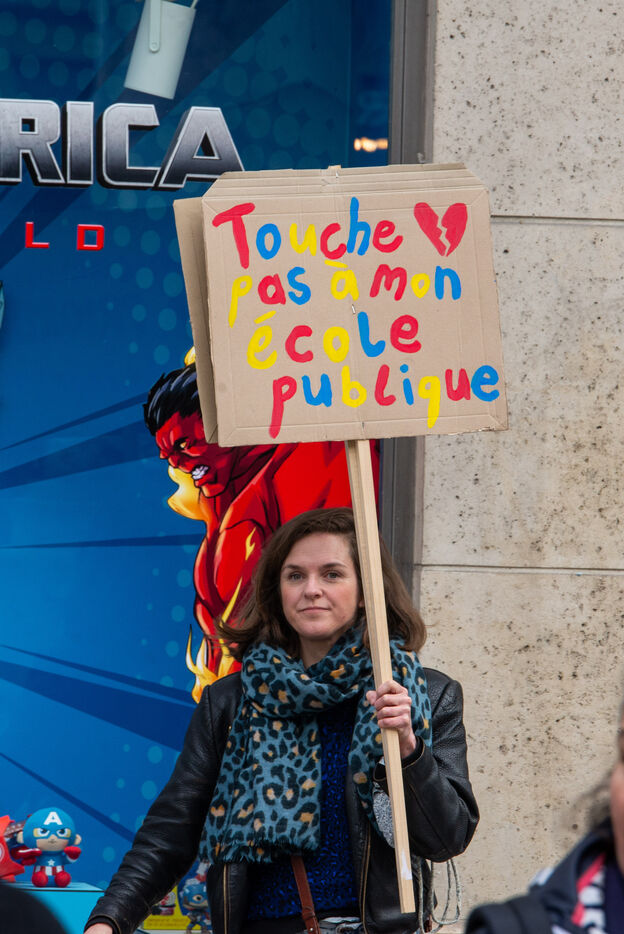 RICA
LD
Touche
pas à mon
école
publique
A